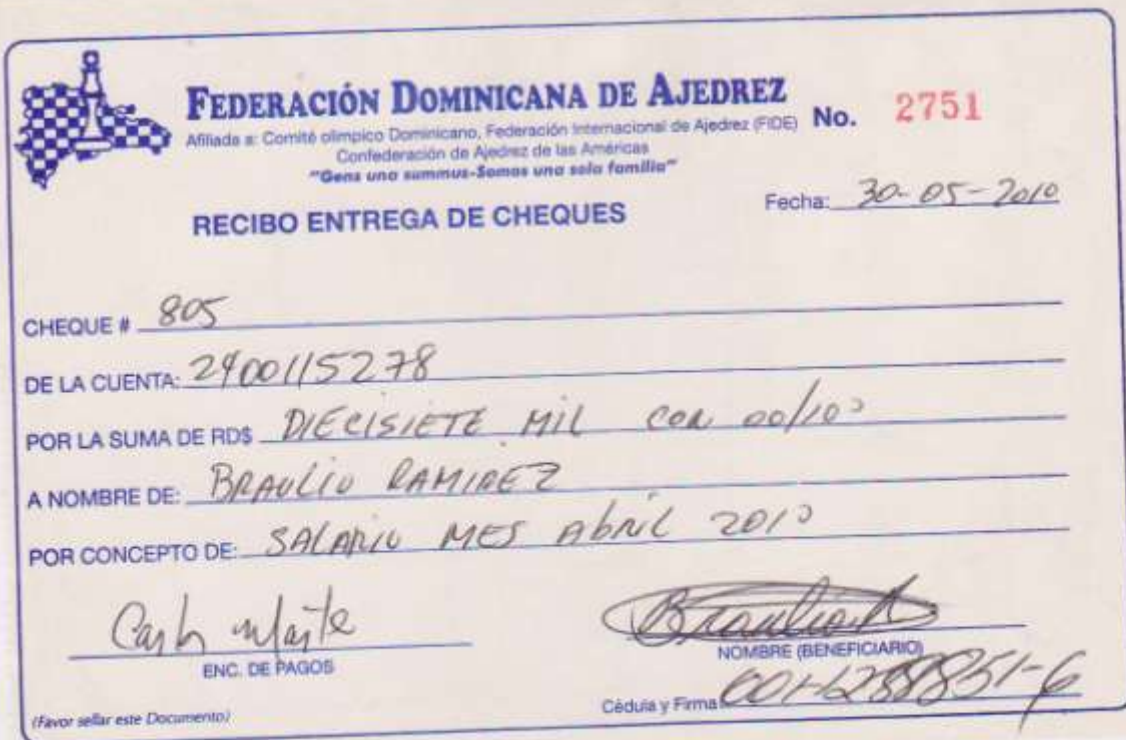 FEDERACIÓN DOMINICANA DE AJEDREZ No. 2751
Afiliada a: Comité olímpico Dominicano, Federación Internacional de Ajedrez (FIDE)
Confederación de Ajedrez de las Américas
"Gens una summus-Somos una sola familia"
RECIBO ENTREGA DE CHEQUES Fecha: 30-05-2010
CHEQUE # 805
DE LA CUENTA: 2400115278
POR LA SUMA DE RD$ DIECISIETE MIL CON 00/100
A NOMBRE DE: BRAULIO RAMIREZ
POR CONCEPTO DE: SALARIO MES AbRIL 2010
ENC. DE PAGOS
Braulio R
NOMBRE (BENEFICIARIO)
Cédula y Firma
(Favor sellar este Documento)